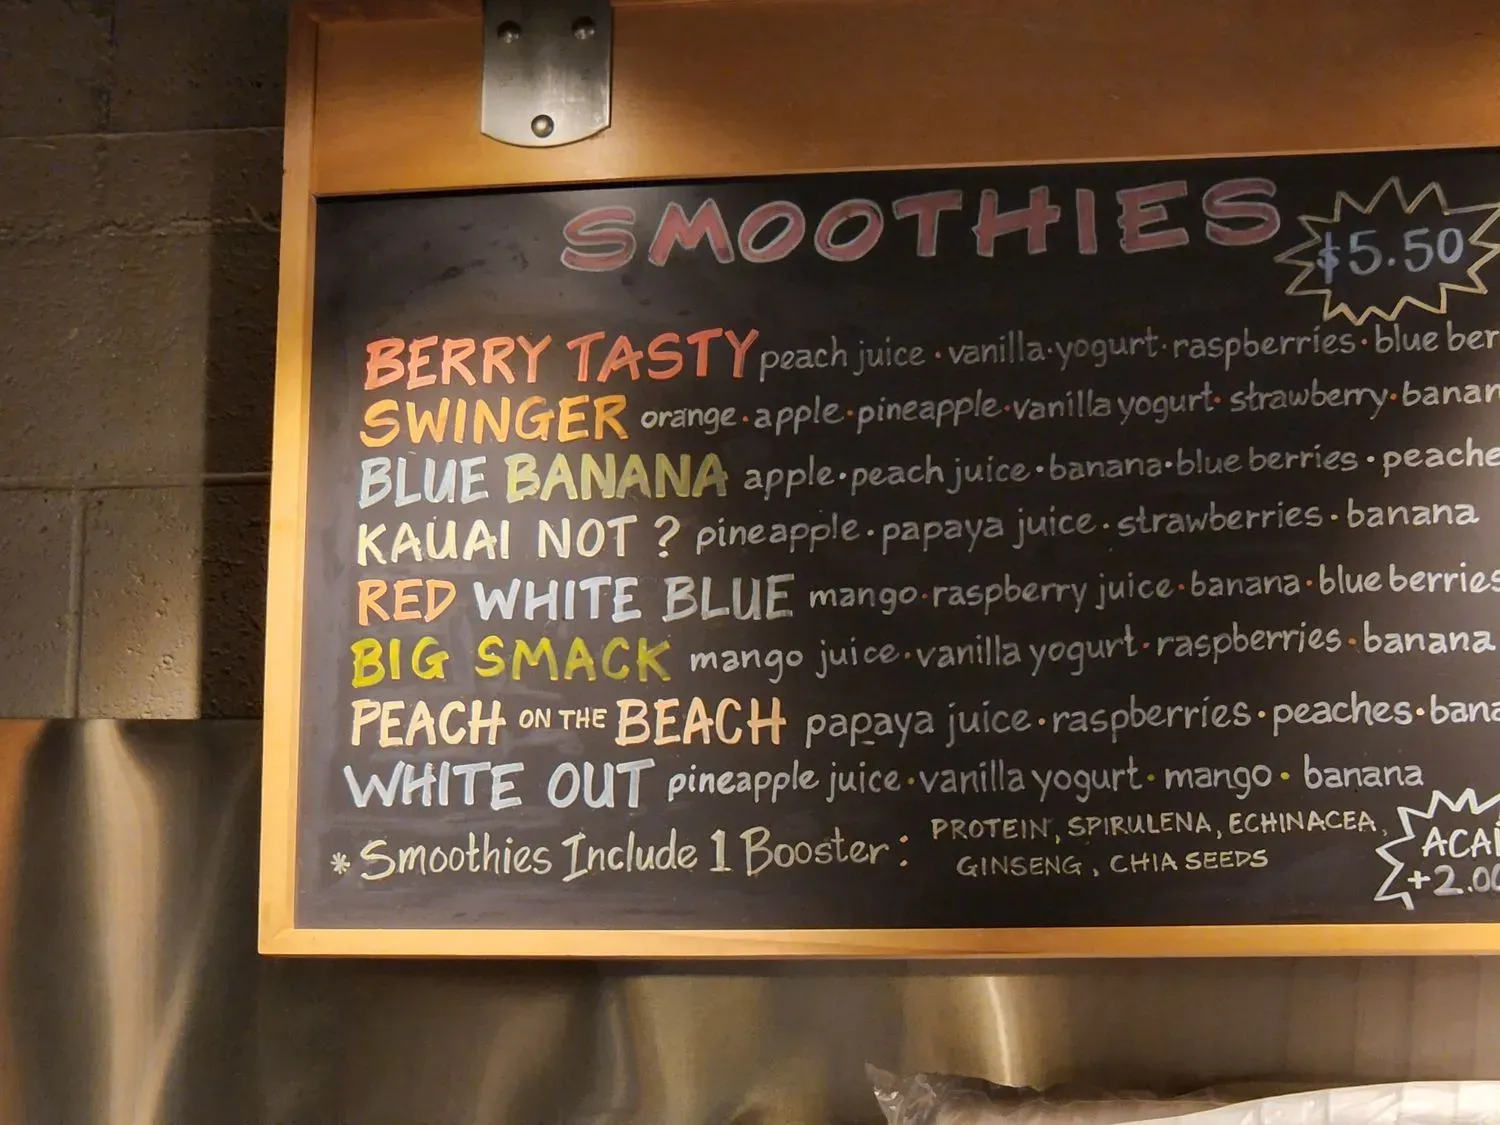 SMOOTHIES
$5.50
BERRY TASTY peach juice · vanilla · yogurt · raspberries · blue ber
SWINGER orange · apple · pineapple · vanilla yogurt · strawberry · banan
BLUE BANANA apple · peach juice · banana · blue berries · peache
KAUAI NOT ? pineapple · papaya juice · strawberries · banana
RED WHITE BLUE mango · raspberry juice · banana · blue berries
BIG SMACK mango juice · vanilla yogurt · raspberries · banana
PEACH ON THE BEACH papaya juice · raspberries · peaches · bana
WHITE OUT pineapple juice · vanilla yogurt · mango · banana
* Smoothies Include 1 Booster : PROTEIN, SPIRULENA, ECHINACEA,
GINSENG, CHIA SEEDS
ACAI
+2.00